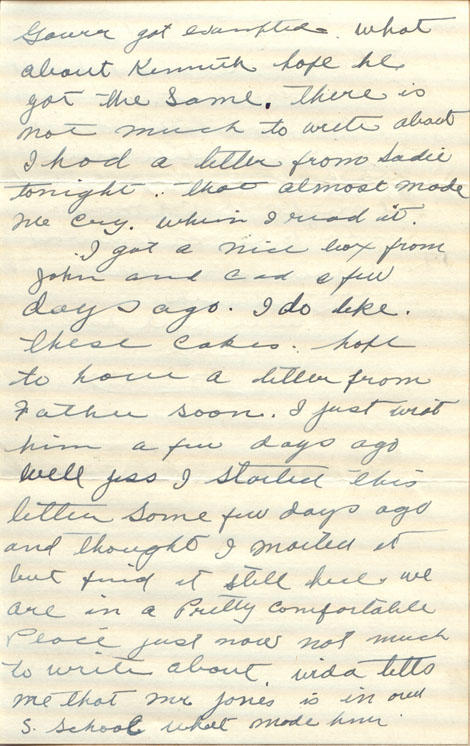 got exempted. what
about Kenneth hope he
got the same. There is
not much to write about
I had a letter from Sadie
tonight. that almost made
me cry. when I read it.
I got a nice box from
John and a few
days ago. I do like.
these cakes. hope
to have a letter from
Father soon. I just wrot
him a few days ago
well yess I started this
letter some few days ago
and thought I mailed it
but find it still here. we
are in a Pretty comfortable
Place just now not much
to write about. vida tells
me that mr Jones is in our
S. School what made him